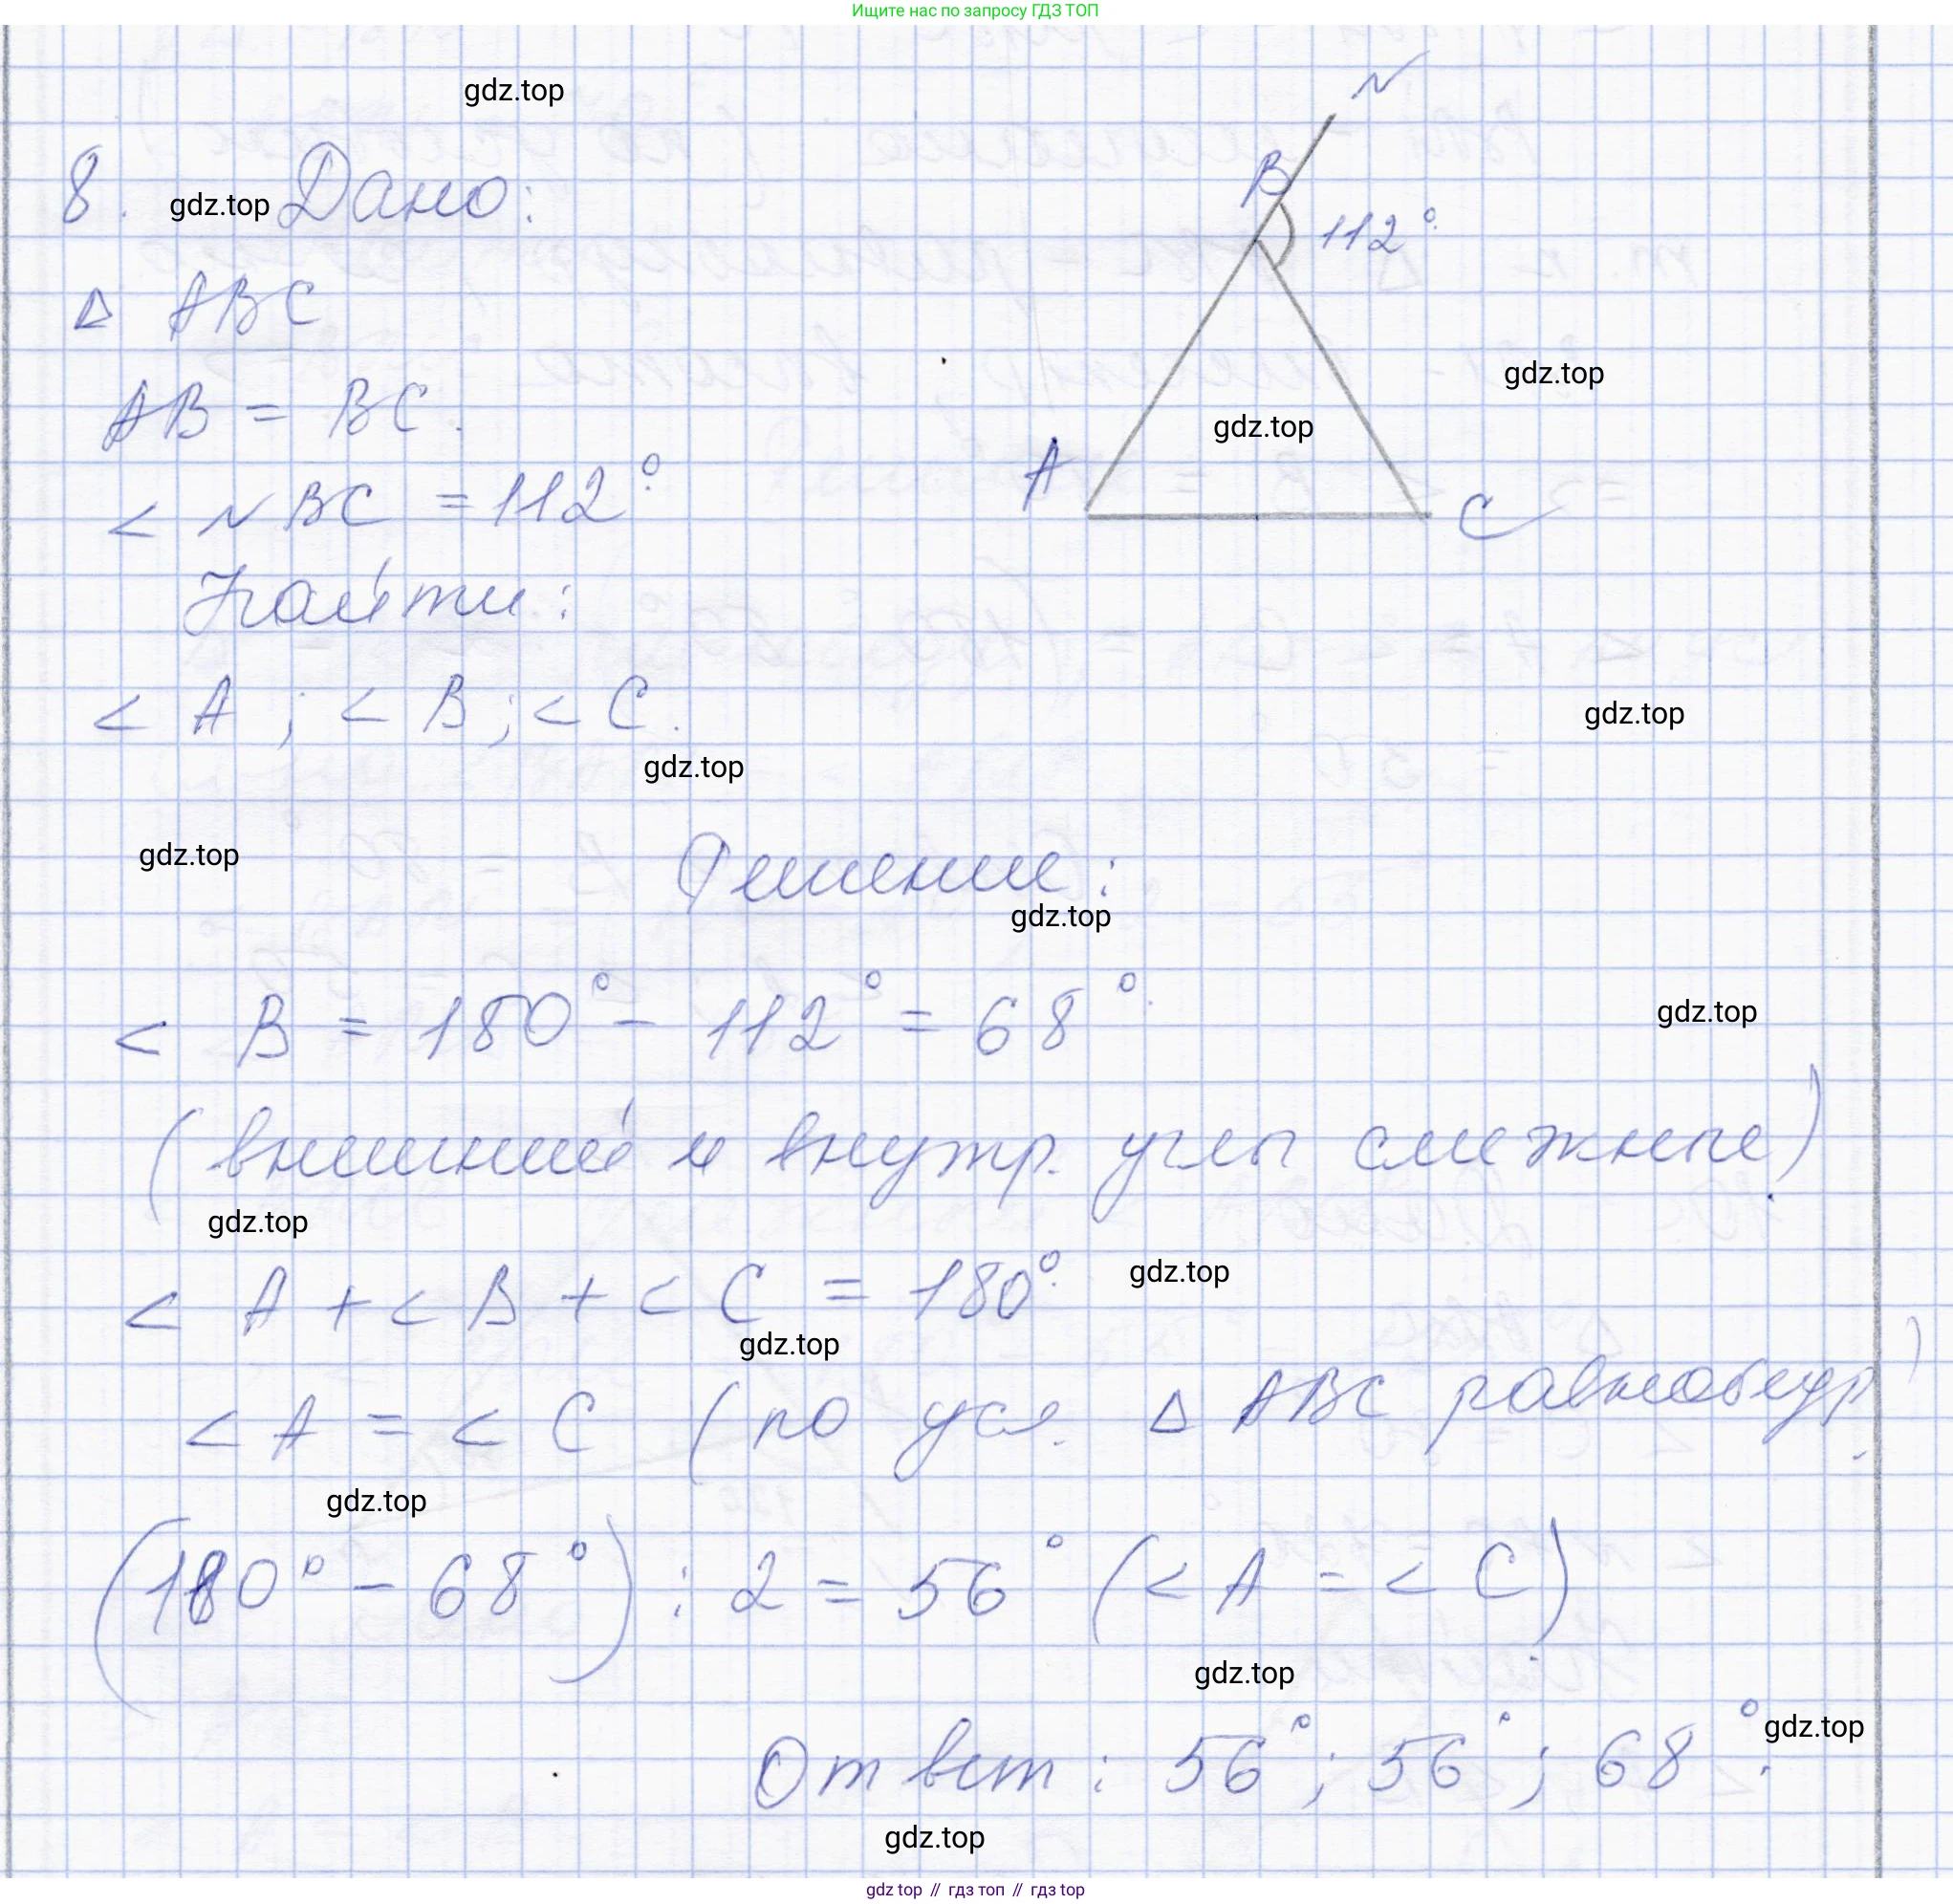 Ищите нас по запросу ГДЗ ТОП
gdz.top
N
B
112°
8. gdz.top Дано:
Δ ABC
gdz.top
AB = BC.
gdz.top
A
C
< NBC = 112°
Найти:
< A ; < B ; < C.
gdz.top
gdz.top
gdz.top
Решение:
gdz.top
< B = 180° - 112° = 68°
gdz.top
(внешний и внутр. углы смежные)
gdz.top
< A + < B + < C = 180°
gdz.top
gdz.top
< A = < C (по усл. Δ ABC равнобедр.)
gdz.top
(180° - 68°) : 2 = 56° (< A = < C)
gdz.top
Ответ: 56°; 56°; 68°.
gdz.top
gdz.top
gdz top // гдз топ // гдз top